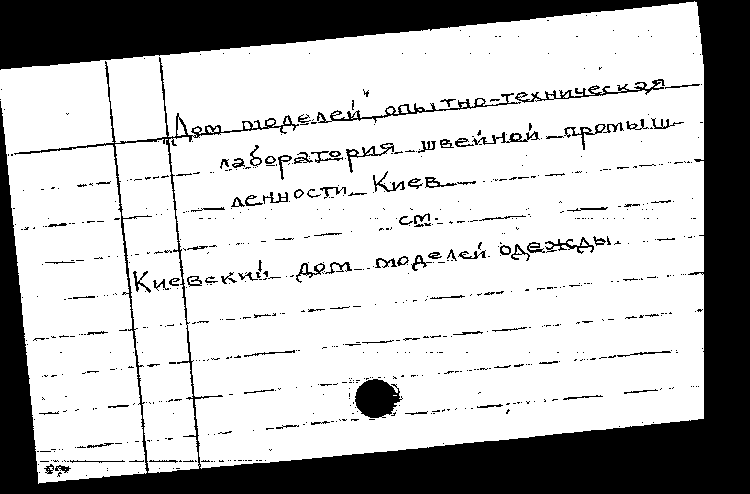 "Дом моделей", опытно-техническая
лаборатория швейной промыш-
ленности. Киев
см.
Киевский дом моделей одежды.